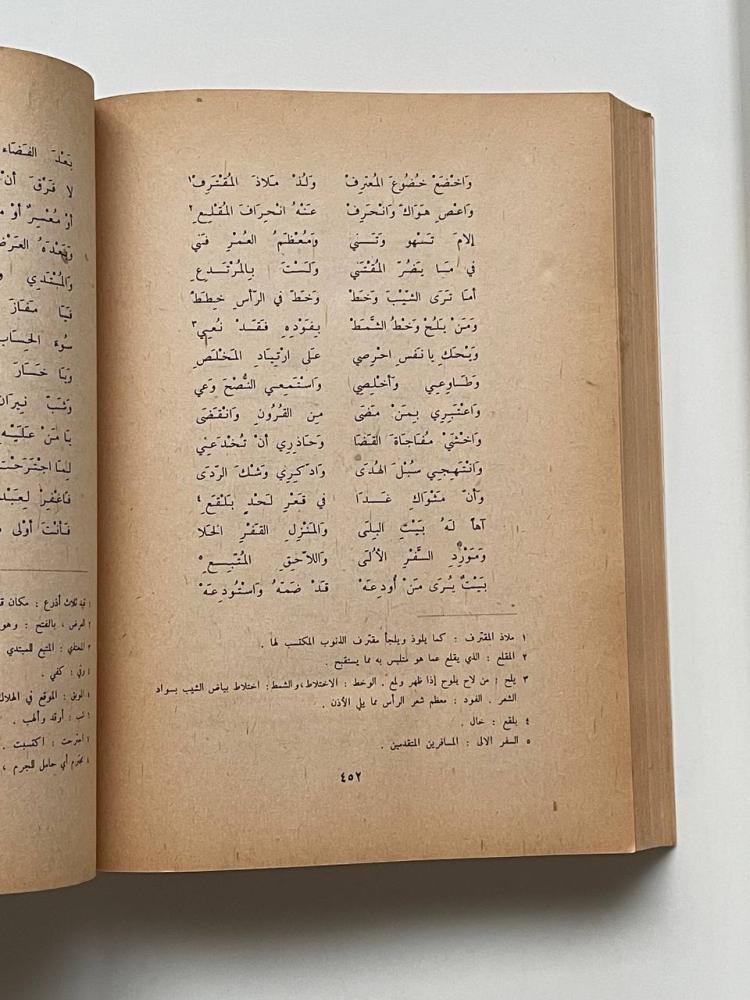 وَاخْضَعْ خُضُوعَ المُعْتَرِفْ وَلُذْ مَلاذَ المُقْتَرِفْ١
وَاعْصِ هَوَاكَ وَانْحَرِفْ عَنْهُ انْحِرَافَ المُقْلِعِ٢
إلامَ تَسْهو وَتَني وَمُعْظَمُ العُمْرِ فَني
في مَا يَضُرّ المُقْتَني وَلَسْتَ بِالمُرْتَدِعِ
أمَا تَرَى الشّيْبَ وَخَطْ وَخَطّ في الرّأسِ خِطَطْ
وَمَنْ يَلُحْ وَخْطُ الشَّمَطْ بِفَوْدِهِ فَقَدْ نُعِي٣
وَيْحَكِ يا نَفسِ احْرِصي عَلى ارْتِيَادِ المَخْلَصِ
وَطَاوِعِي وَأخْلِصِي وَاسْتَمِعِي النُّصْحَ وَعِي
وَاعْتَبِرِي بِمَنْ مَضَى مِنَ القُرُونِ وَانْقَضَى
وَاخْشَيْ مُفَاجَاةَ القَضَا وَحَاذِرِي أنْ تُخْدَعي
وَانْتَهِجِي سُبْلَ الهُدَى وَادّكِرِي وَشْكَ الرّدَى
وَأنّ مَثْوَاكِ غَدَا في قَعْرِ لَحْدٍ بَلْقَعِ٤
آهاً لَهُ بَيْتِ البِلَى وَالمَنْزِلِ القَفْرِ الخَلا
وَمَوْرِدِ السَّفْرِ الأُلَى وَاللاّحِقِ المُتّبِعِ٥
بَيْتٌ يُرَى مَنْ أُودِعَهْ قَدْ ضَمّهُ وَاسْتُودِعَهْ
١ ملاذ المقترف : كما يلوذ ويلجأ مقترف الذنوب المكتسب لها .
٢ المقلع : الذي يقلع عما هو متلبس به مما يستقبح .
٣ يلح : من لاح يلوح إذا ظهر ولمع . الوخط : الاختلاط، والشمط: اختلاط بياض الشيب بسواد
الشعر . الفود : معظم شعر الرأس مما يلي الأذن .
٤ بلقع : خال .
٥ السفر الالى : المسافرين المتقدمين .
٤٥٢
بَعْدَ الفَضَاء
لا فَرْقَ أنْ
أوْ مُعْسِرٌ أوْ
وَبَعْدَهُ العَرْضُ
وَالمُبْتَدِي
فَيَا مَفَازَ
سُوءَ الحِسَابِ
وَيَا خَسَارَ
وَشَبّ نِيرَانَ
يَا مَنْ عَلَيْهِ
لِمَا اجْتَرَحْتُ
فَاغْفِرْ لِعَبْدٍ
فَأنْتَ أوْلى
١ قيد ثلاث أذرع : مكان
٢ العرض ، بالفتح : وهو
المتبع للمبتدي
وقي : كفي .
الموبق : الموقع في الهلاك
شب : أوقد وألهب .
اجترحت : اكتسبت .
أي حامل للجرم ،